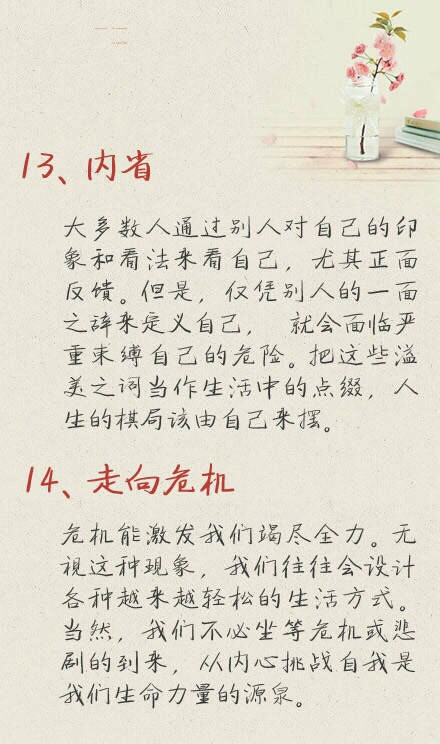 13、内省
大多数人通过别人对自己的印
象和看法来看自己，尤其正面
反馈。但是，仅凭别人的一面
之辞来定义自己，就会面临严
重束缚自己的危险。把这些溢
美之词当作生活中的点缀，人
生的棋局该由自己来摆。
14、走向危机
危机能激发我们竭尽全力。无
视这种现象，我们往往会设计
各种越来越轻松的生活方式。
当然，我们不必坐等危机或悲
剧的到来，从内心挑战自我是
我们生命力量的源泉。